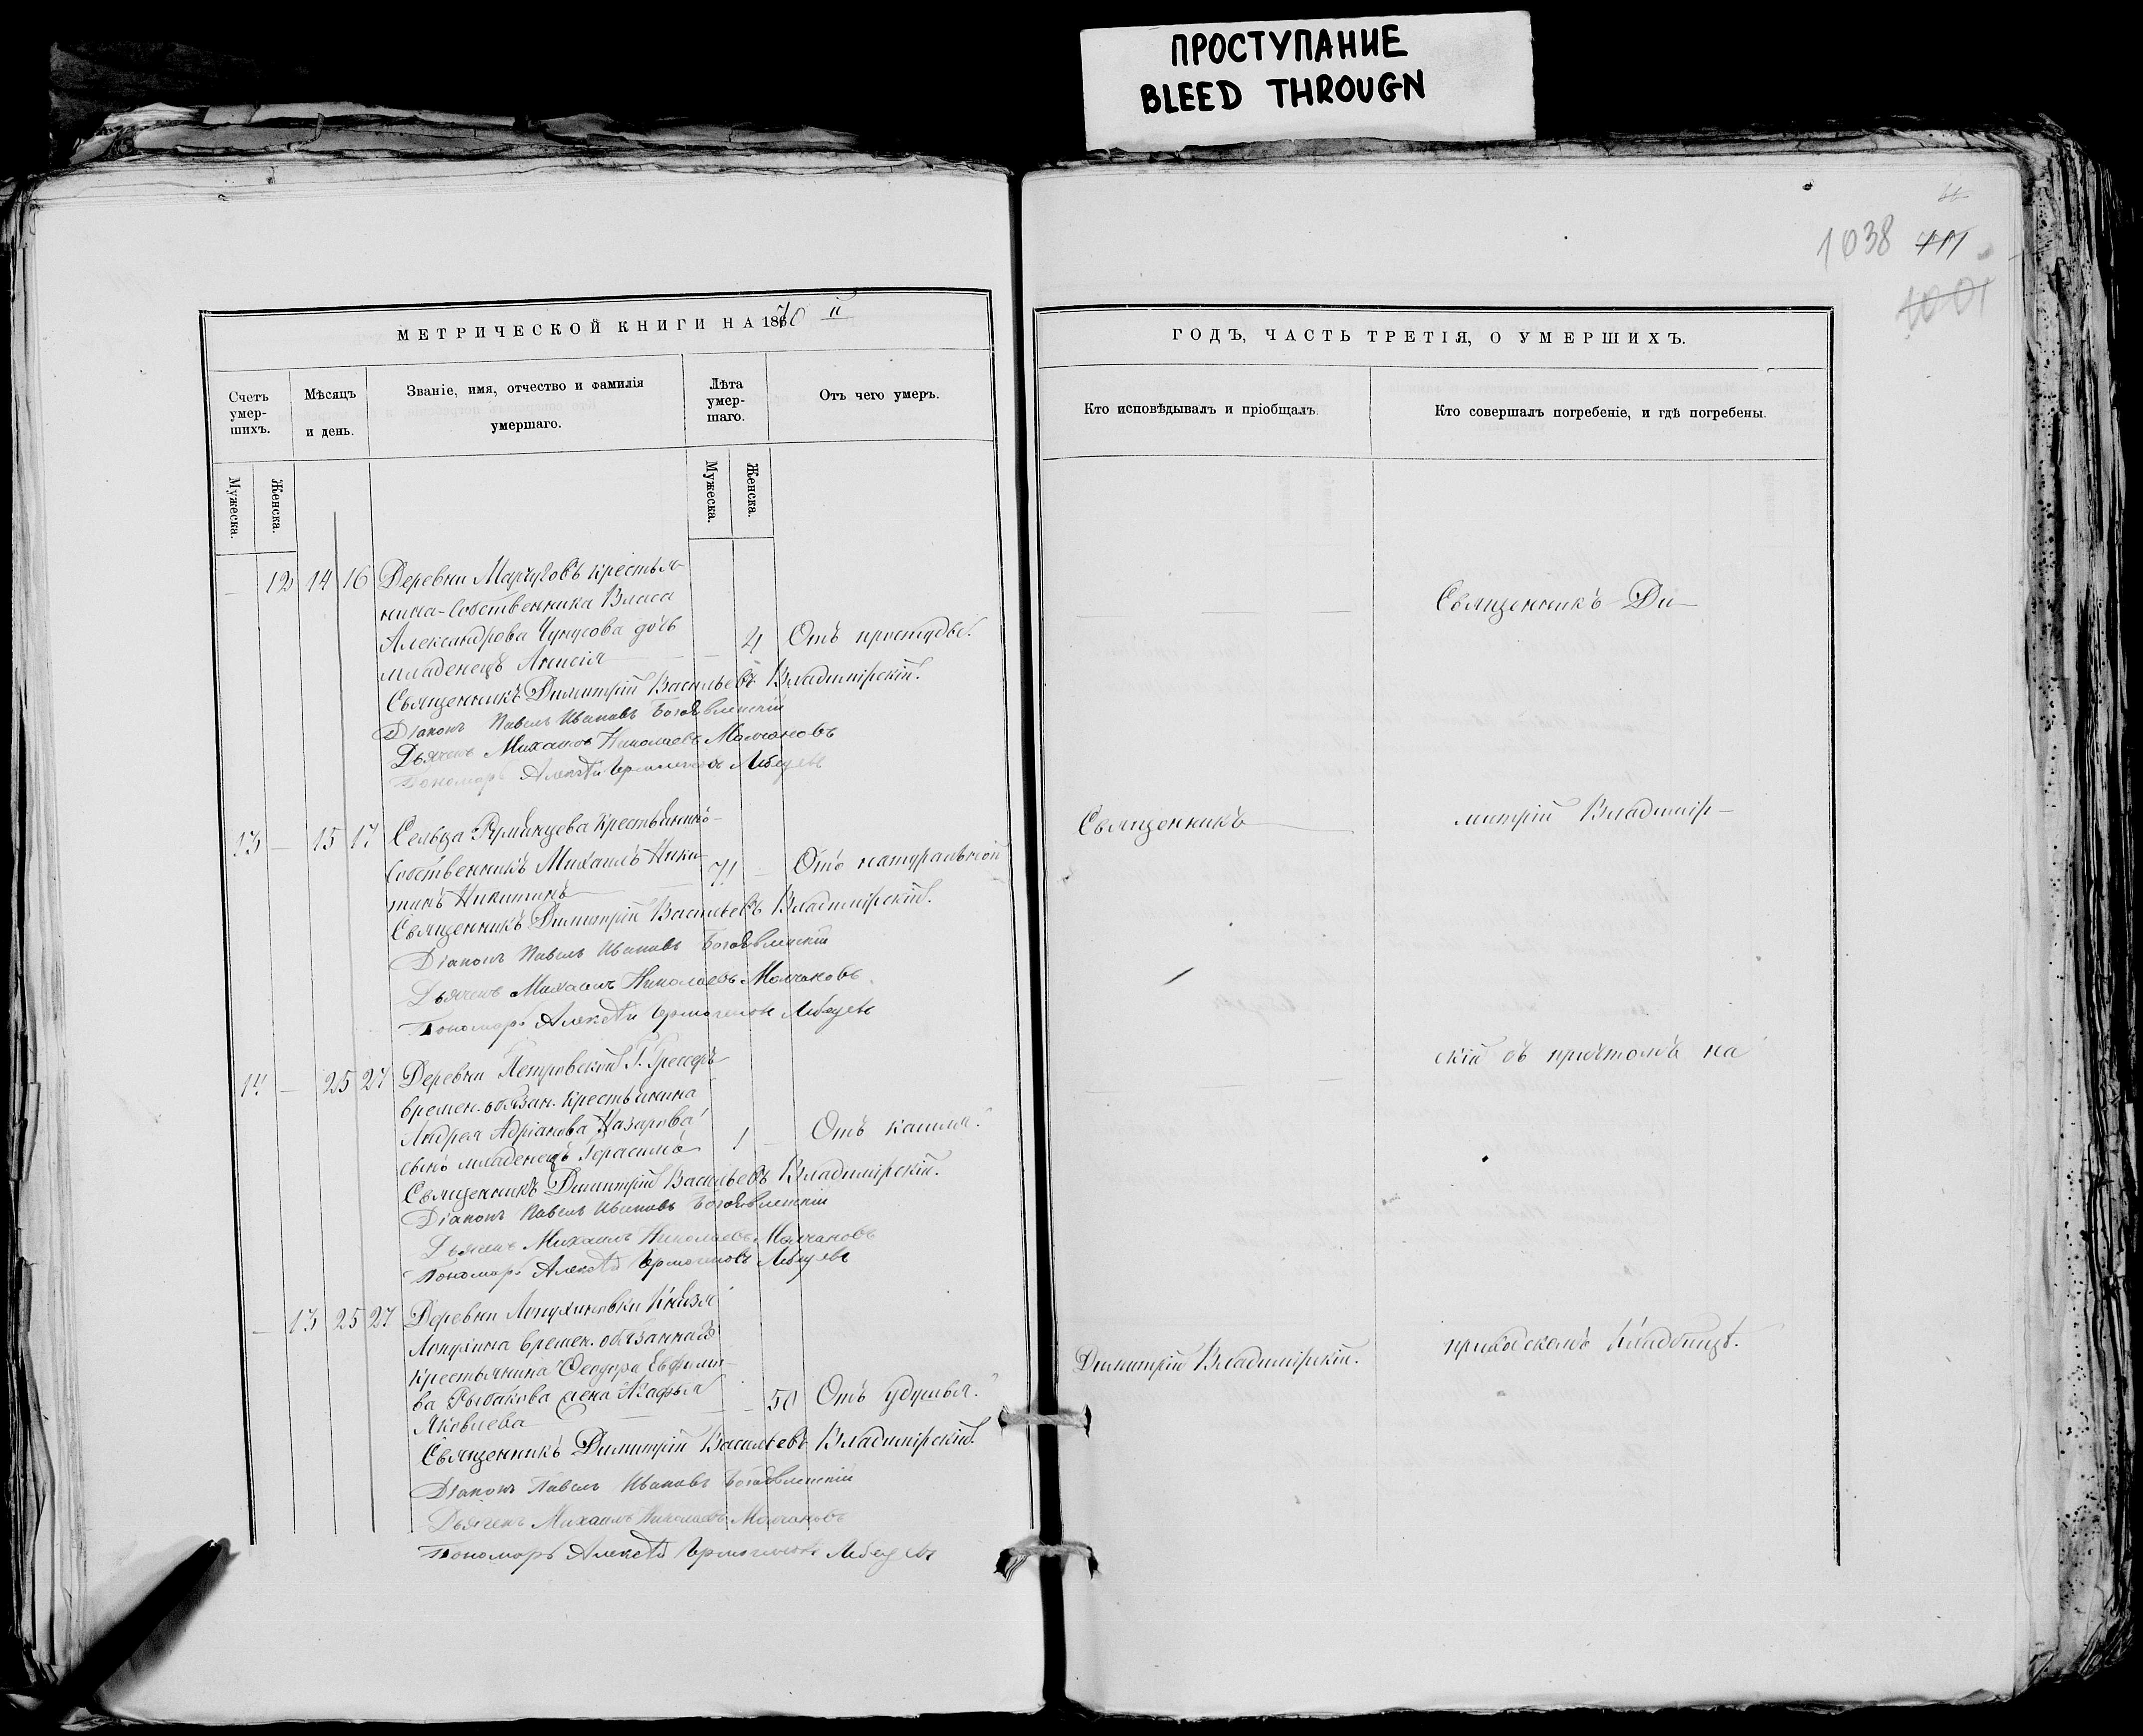 ПРОСТУПАНИЕ
BLEED THROUGN
1038
1001
МЕТРИЧЕСКОЙ КНИГИ НА 1870 й
Счетъ умер-шихъ.
Мѣсяцъ и день.
Званіе, имя, отчество и фамилія умершаго.
Лѣта умер-шаго.
Отъ чего умеръ.
Мужеска.
Женска.
Мужеска.
Женска.
— 12 14 16 Деревни крестья-
нина-собственника Власа
Александрова дочь
младенецъ Анисія — 4 Отъ простуды.
Священникъ Димитрій Васильевъ Владимірскій.
Діаконъ Павелъ Ивановъ Богоявленскій
Дьячекъ Михаилъ Николаевъ Молчановъ
Пономарь Алексѣй Ермогеновъ Лебедевъ
13 — 15 17 Сельца Румянцева крестьянинъ-
собственникъ Михаилъ Ники-
тинъ Никитинъ — 71 — Отъ натуральной
Священникъ Димитрій Васильевъ Владимірскій.
Діаконъ Павелъ Ивановъ Богоявленскій
Дьячекъ Михаилъ Николаевъ Молчановъ
Пономарь Алексѣй Ермогеновъ Лебедевъ
14 — 25 27 Деревни Петровской Г.
времен. обязан. крестьянина
Андрея Адріанова Назарова
сынъ младенецъ Герасимъ 1 — Отъ кашля.
Священникъ Димитрій Васильевъ Владимірскій.
Діаконъ Павелъ Ивановъ Богоявленскій
Дьячекъ Михаилъ Николаевъ Молчановъ
Пономарь Алексѣй Ермогеновъ Лебедевъ
— 13 25 27 Деревни Лопухиновки Князя
Лопухина времен. обязаннаго
крестьянина Ѳеодора Евфимо-
ва Рыбакова жена Агафья
Яковлева — 50 Отъ удушья.
Священникъ Димитрій Васильевъ Владимірскій.
Діаконъ Павелъ Ивановъ Богоявленскій
Дьячекъ Михаилъ Николаевъ Молчановъ
Пономарь Алексѣй Ермогеновъ Лебедевъ
ГОДЪ, ЧАСТЬ ТРЕТІЯ, О УМЕРШИХЪ.
Кто исповѣдывалъ и пріобщалъ.
Кто совершалъ погребеніе, и гдѣ погребены.
Священникъ Ди-
Священникъ
митрій Владимір-
скій съ причтомъ на
Димитрій Владимірскій.
приходскомъ кладбищѣ.